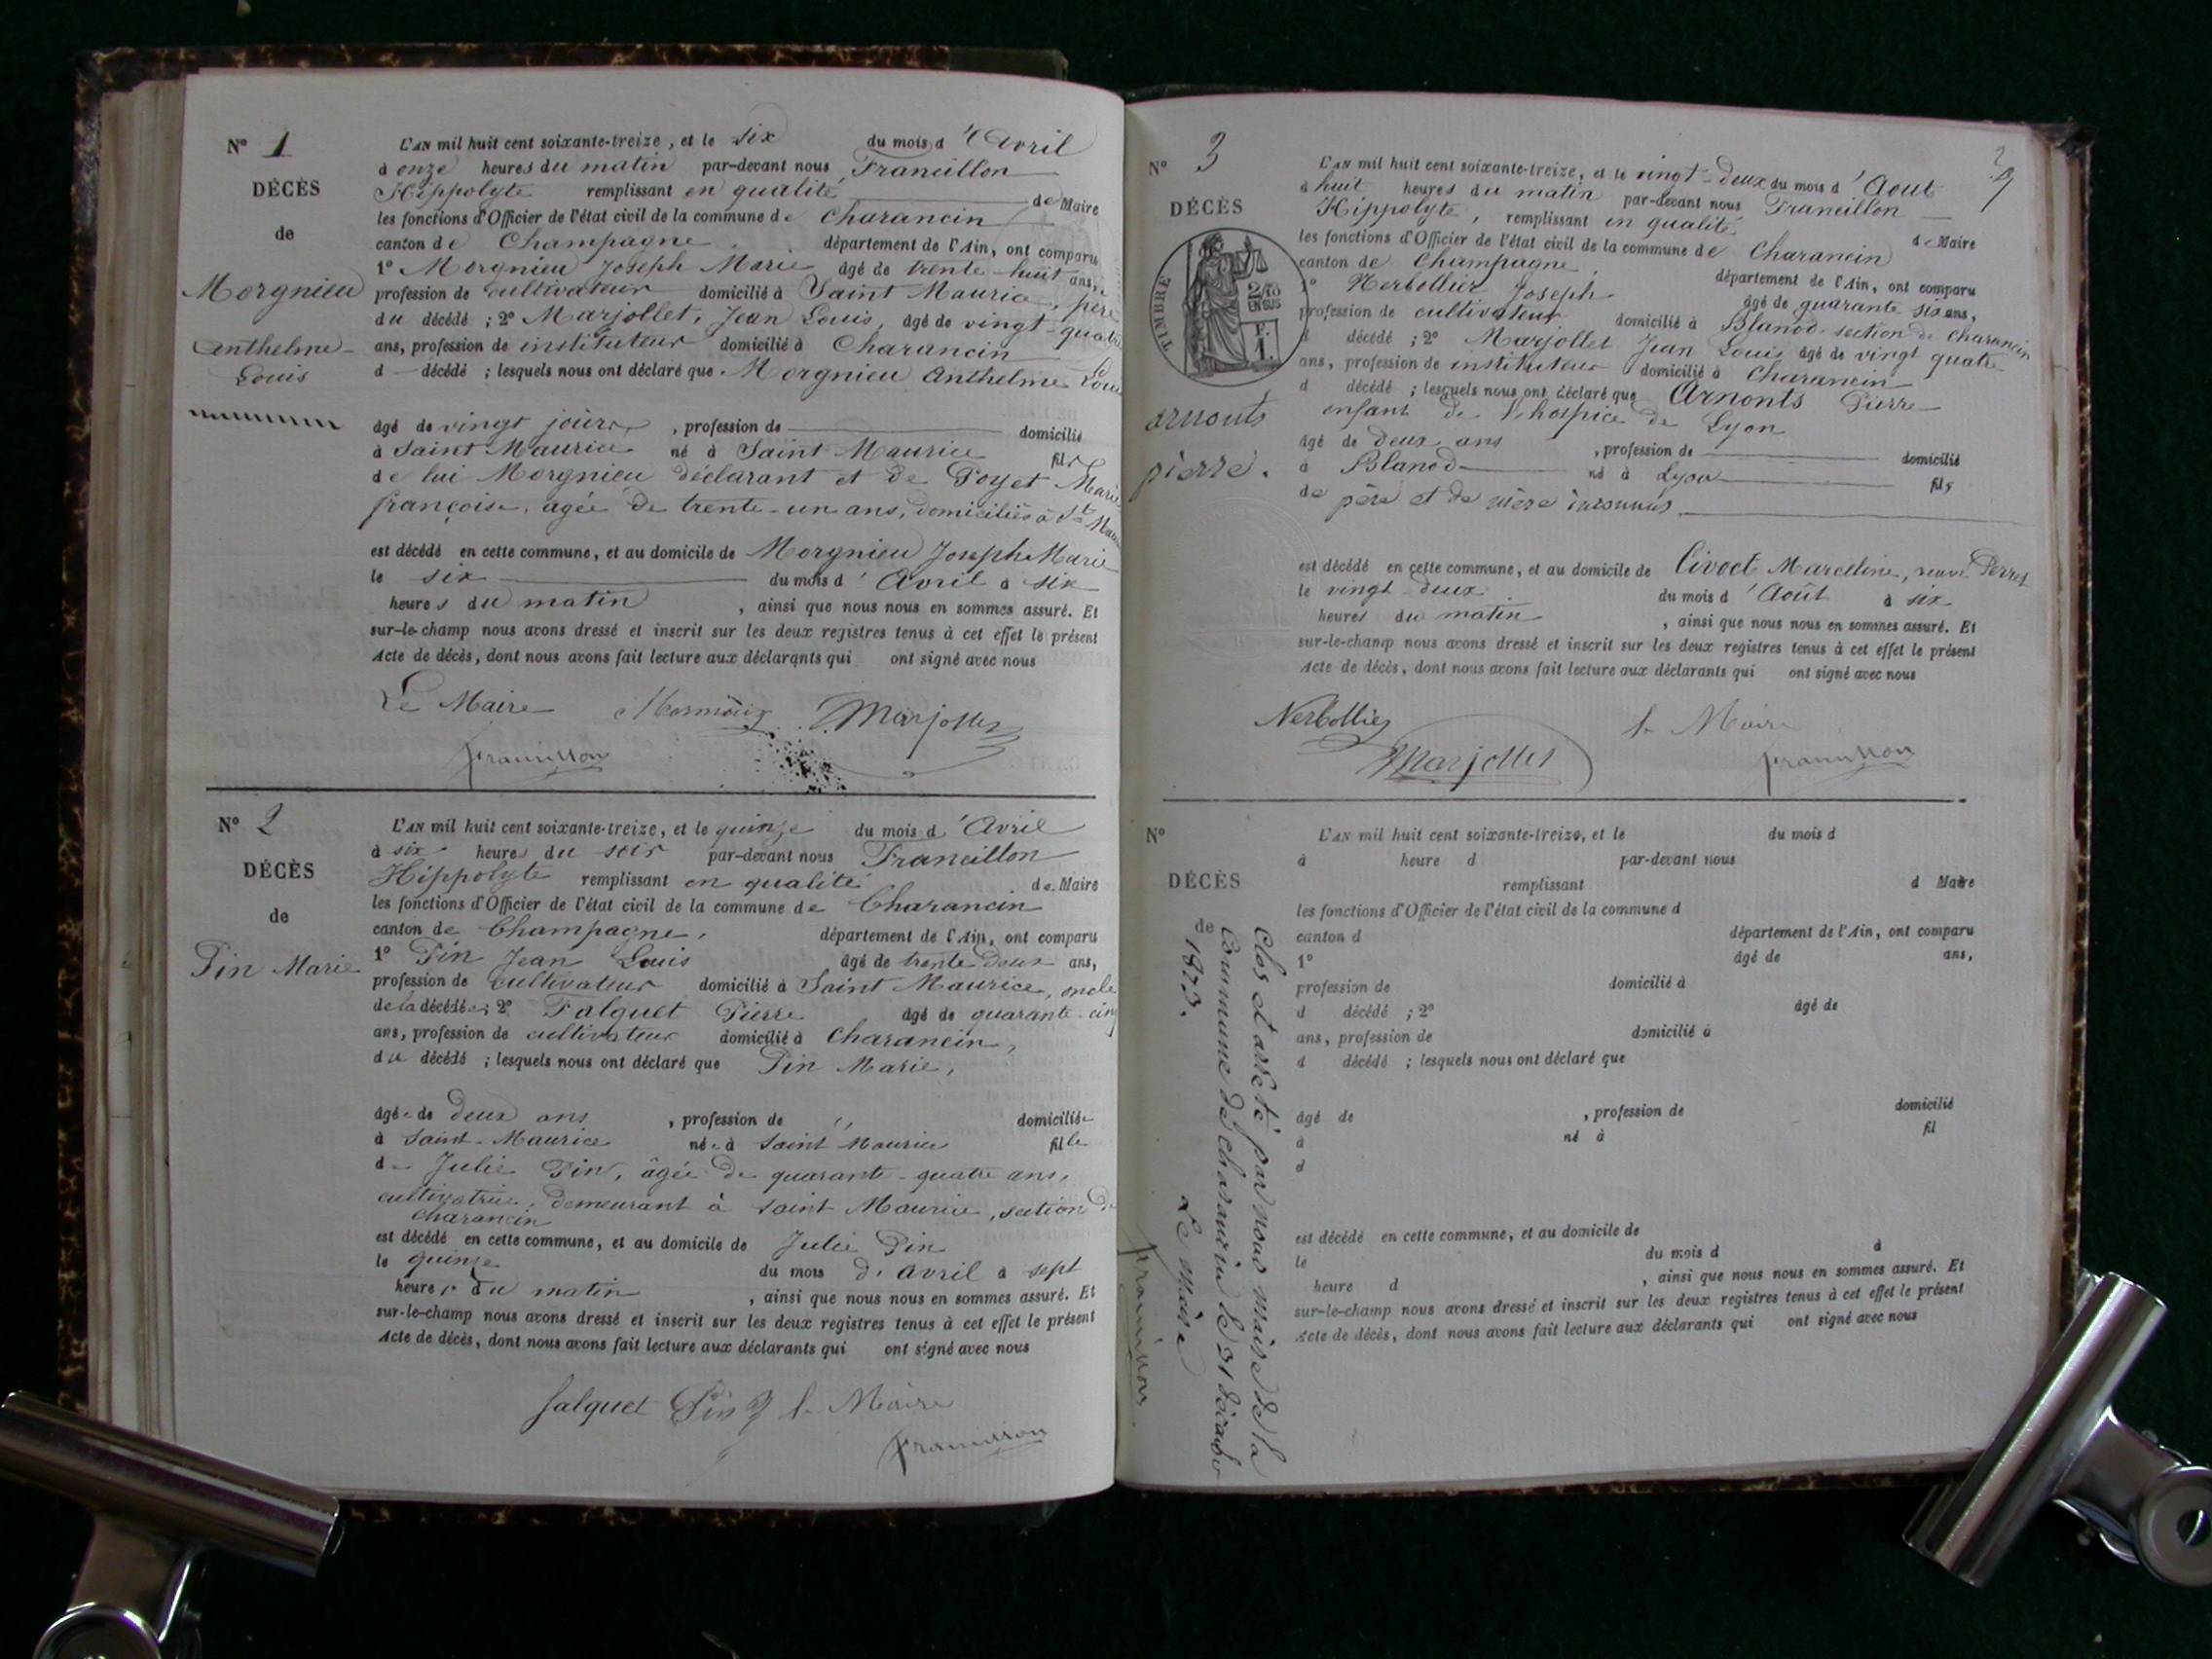 N° 1
DÉCÈS
de
Morgnieu
Anthelme
Louis
L'AN mil huit cent soixante-treize, et le six du mois d'Avril
à onze heures du matin par-devant nous Francillon
Hippolyte remplissant en qualité de Maire
les fonctions d'Officier de l'état civil de la commune de Charancin
canton de Champagne département de l'Ain, ont comparu
1° Morgnieu Joseph Marie âgé de trente-huit ans,
profession de cultivateur domicilié à Saint Maurice, père
du décédé ; 2° Marjollet, Jean Louis, âgé de vingt-quatre
ans, profession de instituteur domicilié à Charancin
d décédé ; lesquels nous ont déclaré que Morgnieu Anthelme Louis
âgé de vingt jours, profession de domicilié
à Saint Maurice né à Saint Maurice fils
de lui Morgnieu déclarant et de Poyet Marie
françoise, agée de trente-un ans, domiciliés à St
est décédé en cette commune, et au domicile de Morgnieu Joseph Marie
le six du mois d'Avril à six
heures du matin, ainsi que nous nous en sommes assuré. Et
sur-le-champ nous avons dressé et inscrit sur les deux registres tenus à cet effet le présent
Acte de décès, dont nous avons fait lecture aux déclarants qui ont signé avec nous
Le Maire Marjollet
Francillon
N° 2
DÉCÈS
de
Pin Marie
L'AN mil huit cent soixante-treize, et le quinze du mois d'Avril
à six heures du soir par-devant nous Francillon
Hippolyte remplissant en qualité de Maire
les fonctions d'Officier de l'état civil de la commune de Charancin
canton de Champagne, département de l'Ain, ont comparu
1° Pin Jean Louis âgé de trente deux ans,
profession de cultivateur domicilié à Saint Maurice, oncle
de la décédée ; 2° Falquet Pierre âgé de quarante-cinq
ans, profession de cultivateur domicilié à Charancin,
du décédé ; lesquels nous ont déclaré que Pin Marie,
âgée de deux ans, profession de " domiciliée
à Saint-Maurice née à Saint-Maurice fille
de Julie Pin, âgée de quarante-quatre ans,
cultivatrice, demeurant à Saint Maurice, section de
Charancin
est décédé en cette commune, et au domicile de Julie Pin
le quinze du mois d'avril à sept
heures du matin, ainsi que nous nous en sommes assuré. Et
sur-le-champ nous avons dressé et inscrit sur les deux registres tenus à cet effet le présent
Acte de décès, dont nous avons fait lecture aux déclarants qui ont signé avec nous
falquet Pin le Maire
Francillon
2
N° 3
DÉCÈS
TIMBRE
2/10
EN SUS
F.
1.
arnonts
pierre.
L'AN mil huit cent soixante-treize, et le vingt-deux du mois d'Aout
à huit heures du matin par-devant nous Francillon
Hippolyte, remplissant en qualité de Maire
les fonctions d'Officier de l'état civil de la commune de Charancin
canton de Champagne, département de l'Ain, ont comparu
1° Nerbollier Joseph âgé de quarante six ans,
profession de cultivateur domicilié à Blanod section de charancin
d décédé ; 2° Marjollet Jean Louis âgé de vingt quatre
ans, profession de instituteur domicilié à Charancin
d décédé ; lesquels nous ont déclaré que Arnonts Pierre
enfant de l'hospice de Lyon
âgé de deux ans, profession de domicilié
à Blanod né à Lyon fils
de père et de mère inconnus
est décédé en cette commune, et au domicile de Civoct Marceline, veuve
le vingt-deux du mois d'Août à six
heures du matin, ainsi que nous nous en sommes assuré. Et
sur-le-champ nous avons dressé et inscrit sur les deux registres tenus à cet effet le présent
Acte de décès, dont nous avons fait lecture aux déclarants qui ont signé avec nous
Nerbollier le Maire
Marjollet Francillon
N°
DÉCÈS
de
L'AN mil huit cent soixante-treize, et le du mois d
à heure d par-devant nous
remplissant d Maire
les fonctions d'Officier de l'état civil de la commune d
canton d département de l'Ain, ont comparu
1° âgé de ans,
profession de domicilié à
d décédé ; 2° âgé de
ans, profession de domicilié à
d décédé ; lesquels nous ont déclaré que
âgé de, profession de domicilié
à né à fil
d
est décédé en cette commune, et au domicile de
le du mois d à
heure d, ainsi que nous nous en sommes assuré. Et
sur-le-champ nous avons dressé et inscrit sur les deux registres tenus à cet effet le présent
Acte de décès, dont nous avons fait lecture aux déclarants qui ont signé avec nous
Clos et arrêté par nous maire de la
Commune de charancin le 31 décembre
1873. Le maire
Francillon